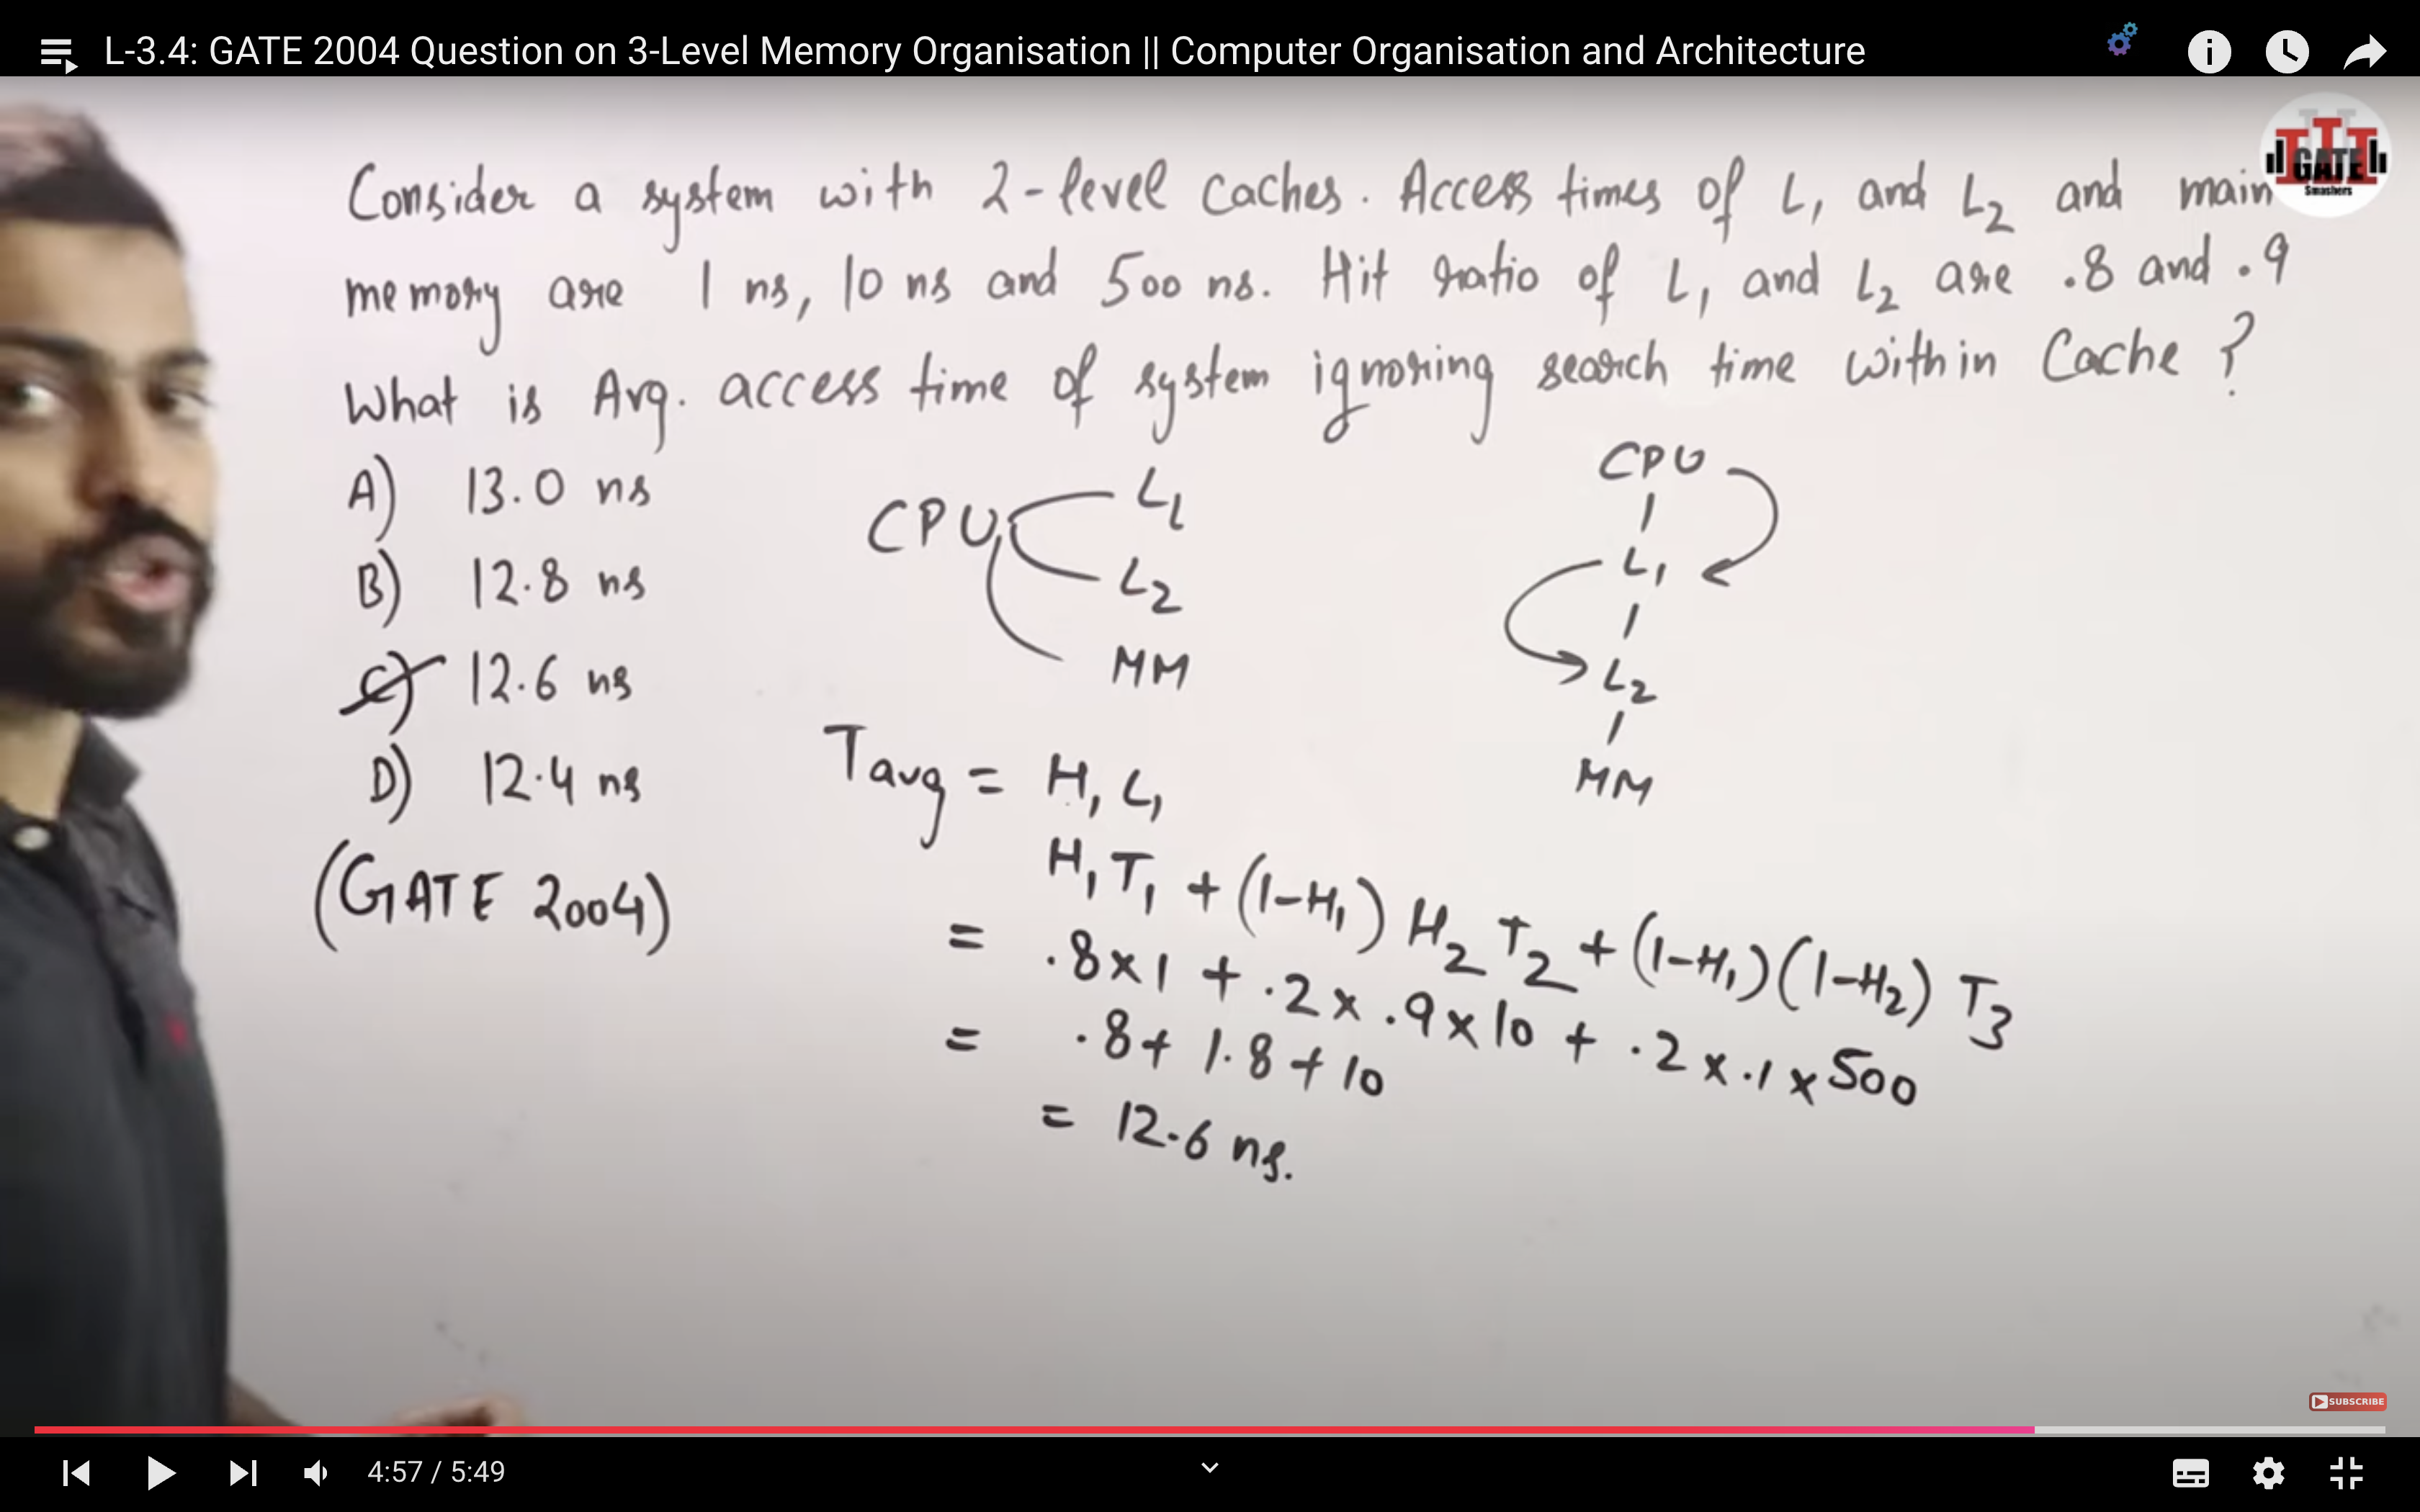 L-3.4: GATE 2004 Question on 3-Level Memory Organisation || Computer Organisation and Architecture
GATE
Smashers
Consider a system with 2-level Caches. Access times of L1 and L2 and main
memory are 1 ns, 10 ns and 500 ns. Hit ratio of L1 and L2 are .8 and .9
What is Avg. access time of system ignoring search time within Cache?
A) 13.0 ns
B) 12.8 ns
C) 12.6 ns
D) 12.4 ns
(GATE 2004)
CPU
L1
L2
MM
CPU
L1
L2
MM
Tavg = H1 L1
H1T1 + (1-H1) H2 T2 + (1-H1)(1-H2) T3
= .8×1 + .2×.9×10 + .2×.1×500
= .8+ 1.8+10
= 12.6 ns.
SUBSCRIBE
4:57 / 5:49